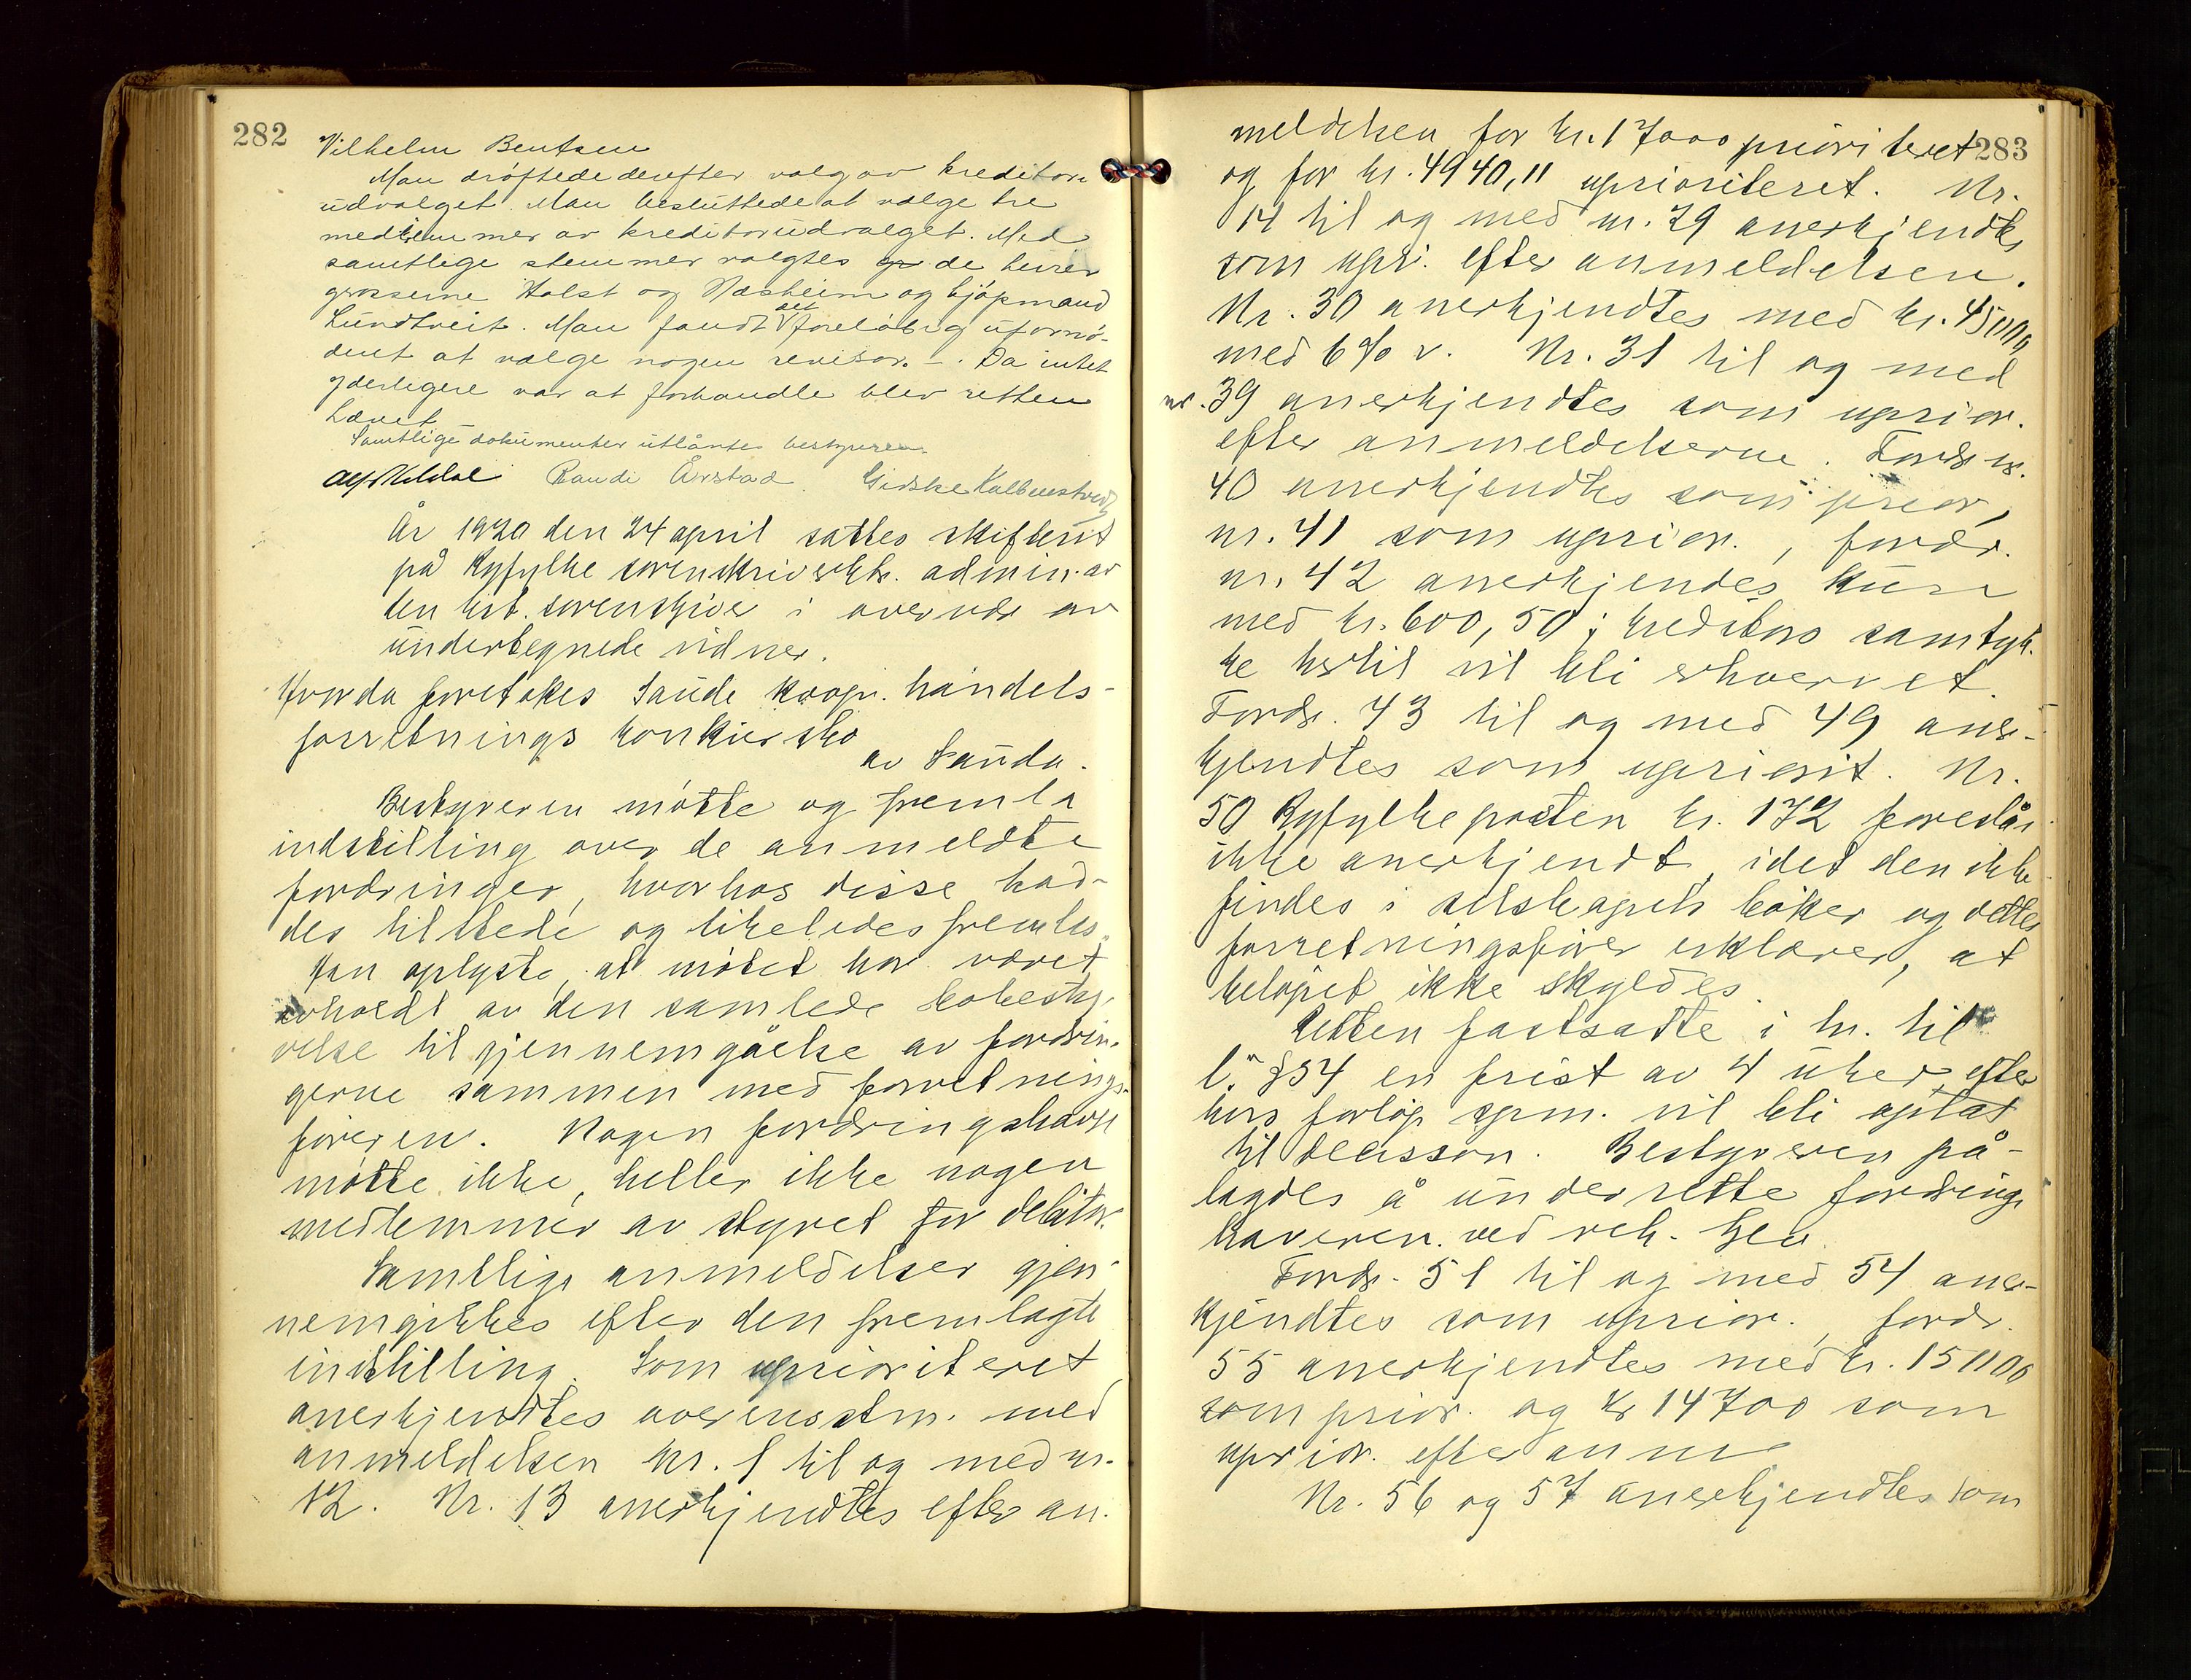 282
Vilhelm Bentsen
Man drøftede derefter valg av kreditor-
udvalget. Man besluttede at vælge tre
medlemmer av kreditorudvalget. Med
samtlige stemmer valgtes de herrer
grosserne Holst og Næsheim og kjøpmand
Lundtveit. Man fandt det foreløbig ufornø-
dent at vælge nogen revisor. - . Da intet
yderligere var at forhandle blev retten
hævet
Samtlige dokumenter utlåntes bestyreren
Randi Årstad Gidske Kalbenstvedt
År 1920 den 24 april sattes skifteret
på Ryfylke sorenskriverktr. admin. av
den kst. sorenskriver i overvær av
undertegnede vidner.
Hvorda foretokes Saude koop. handels-
forretnings konkursbo
av Sauda.
Bestyreren møtte og fremla
indstilling over de anmeldte
fordringer, hvorhos disse had-
des tilstede og likeledes fremles.
Han oplyste, at møtet har været
avholdt av den samlede bobesty-
relse til gjennemgåelse av fordrin-
gerne sammen med forretnings-
føreren. Nogen fordringshaver
møtte ikke, heller ikke nogen
medlemmer av styret for debitor.
Samtlige anmeldelser gjen-
nemgikkes efter den fremlagte
indstilling. Som uprioriteret
anerkjendtes overensstm. med
anmeldelsen nr. 1 til og med nr.
12. Nr. 13 anerkjendtes efter an-
283
meldelsen for kr. 17000 prioriteret
og for kr. 4940,11 uprioriteret. Nr.
14 til og med nr. 29 anerkjendtes
som upri. efter anmeldelsen.
Nr. 30 anerkjendtes med kr.
med 6% r. Nr. 31 til og med
nr. 39 anerkjendtes som uprior.
efter anmeldelserne. Fordr. nr.
40 anerkjendtes som prior,
nr. 41 som uprior., fordr.
nr. 42 anerkjendes kun
med kr. 600,50; kreditors samtyk-
ke hertil vil bli erhvervet.
Fordr. 43 til og med 49 aner-
kjendtes som upriorit. Nr.
50 Ryfylkeposten kr. 172 foreslås
ikke anerkjendt, idet den ikke
findes i selskapets bøker og dettes
forretningsfører erklærer, at
beløpet ikke skyldes.
Retten fastsatte i hr. til
l. § 54 en frist av 4 uker, efter
hvis forløp spm. vil bli optat
til decisson. Bestyreren på-
lagdes å underrette fordrings
haveren ved rek. brev
Fordr. 51 til og med 54 aner-
kjendtes som uprior., fordr.
55 anerkjendtes med kr.
som prior. og kr 14700 som
uprior. efter anm
Nr. 56 og 57 anerkjendtes som